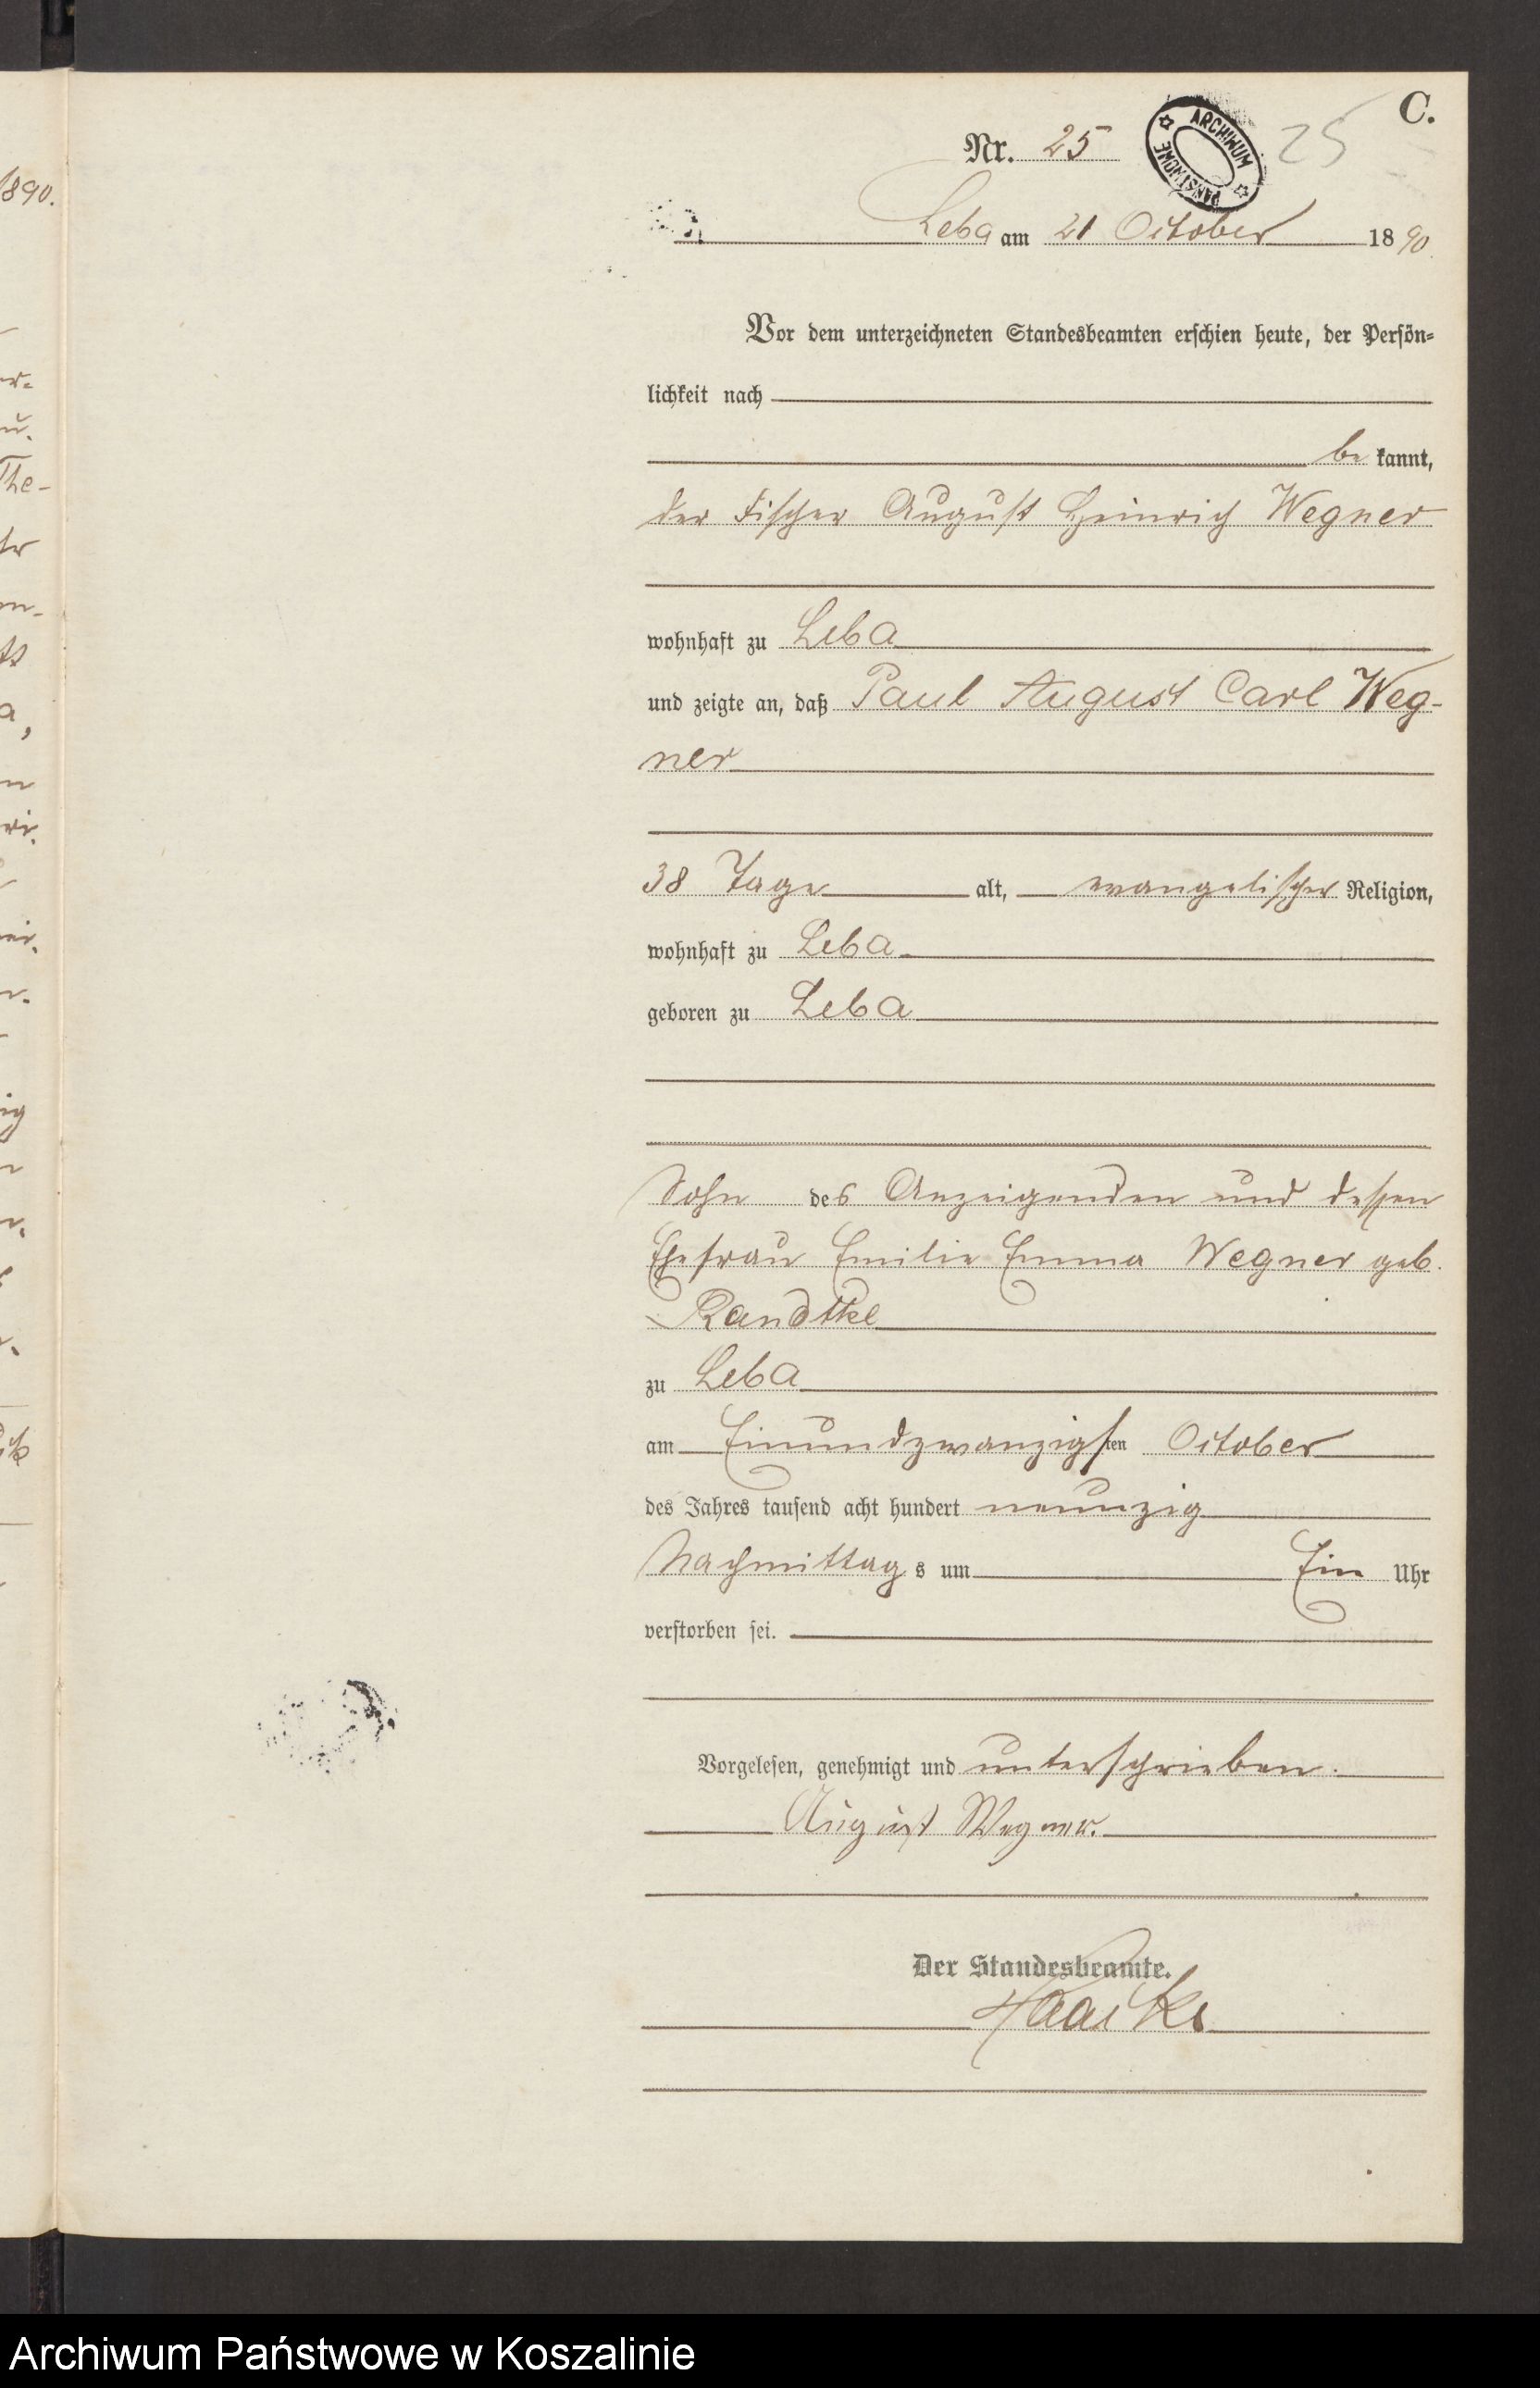 C.
Nr. 25
ARCHIWUM PAŃSTWOWE
25
1890.
Leba am 21 October 1890.
Vor dem unterzeichneten Standesbeamten erschien heute, der Persön=
lichkeit nach
be kannt,
der Fischer August Heinrich Wegner
wohnhaft zu Leba
und zeigte an, daß Paul August Carl Weg-
ner
38 Tage alt, evangelischer Religion,
wohnhaft zu Leba
geboren zu Leba
Sohn des Anzeigenden und dessen
Ehefrau Emilie Emma Wegner geb.
Randtke
zu Leba
am Einundzwanzigsten October
des Jahres tausend acht hundert neunzig
Nachmittags um Ein Uhr
verstorben sei.
Vorgelesen, genehmigt und unterschrieben.
August Wegner.
Der Standesbeamte.
Archiwum Państwowe w Koszalinie